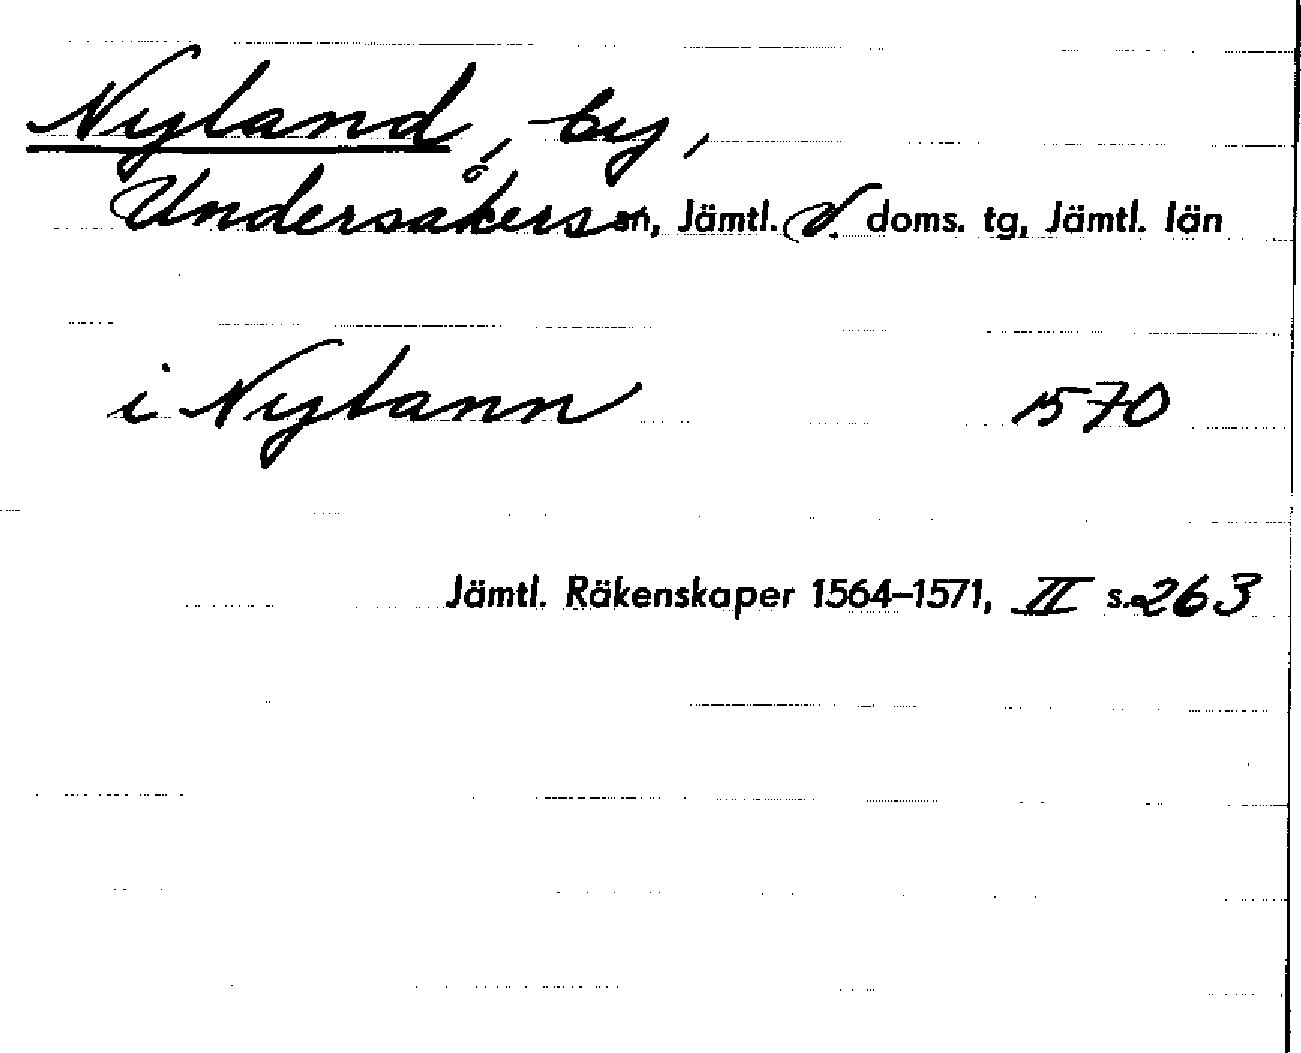 Nyland, by,
Undersåkers sn, Jämtl. v. doms. tg, Jämtl. län
i Nylann 1570
Jämtl. Räkenskaper 1564–1571, II s. 263